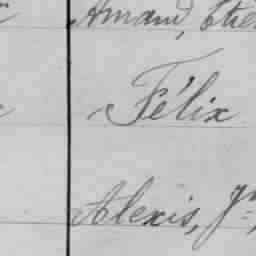 Armand, Etie
Félix
Alexis, Jn